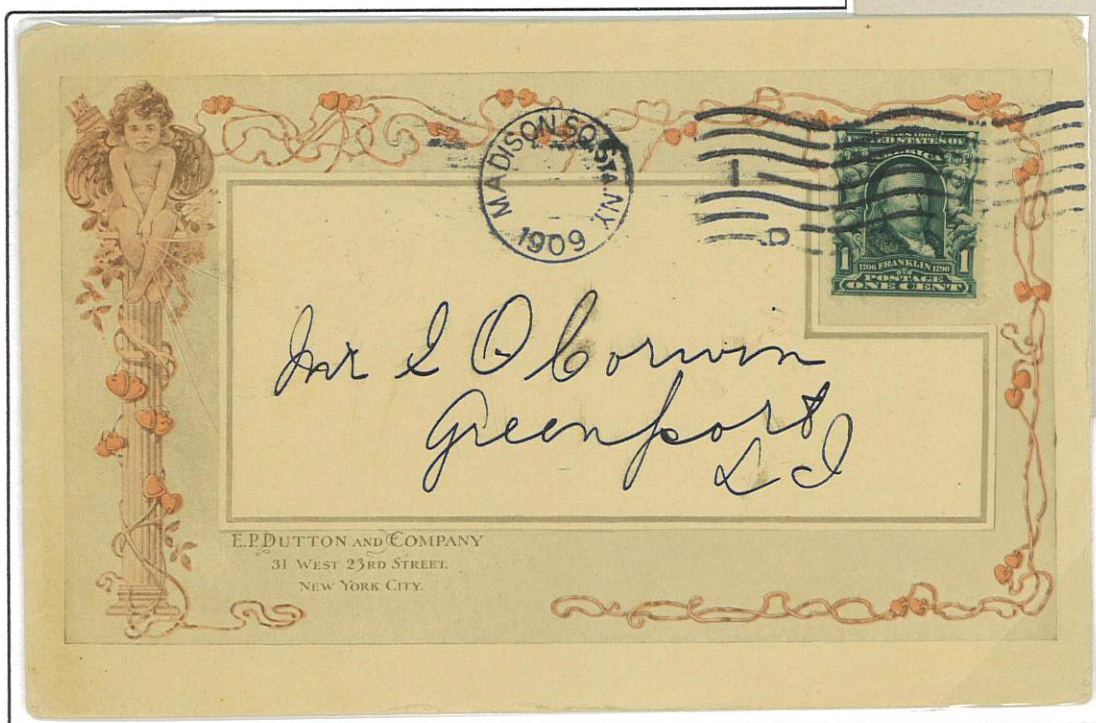 MADISON SQ. STA. N.Y.
1909
1
D
SERIES 1902
UNITED STATES OF
AMERICA
1 1
1706 FRANKLIN 1790
POSTAGE
ONE CENT
Mr I O Corwin
Greenport
L I
E.P. DUTTON AND COMPANY
31 WEST 23RD STREET.
NEW YORK CITY.